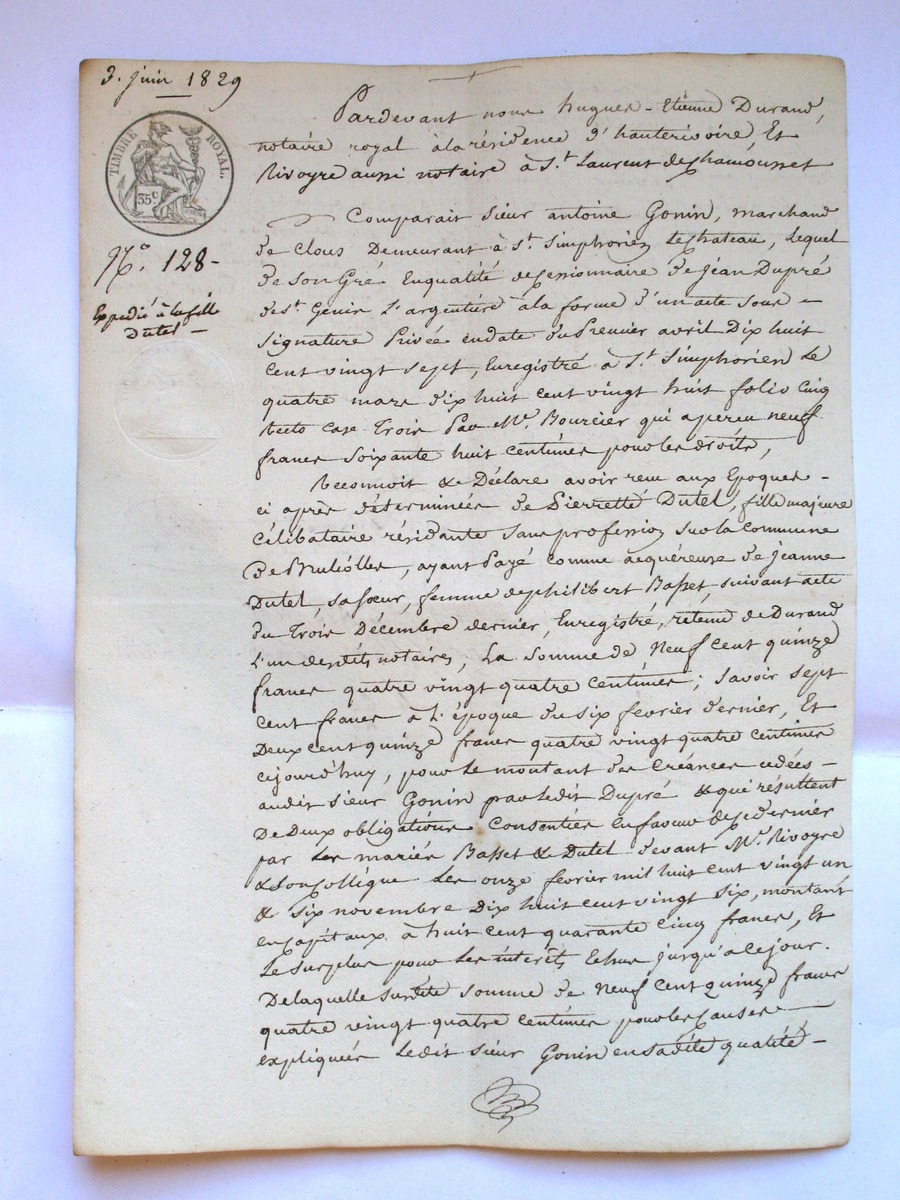 3. juin 1829
TIMBRE ROYAL.
35c
N.o 128-
Expedié à la fille
Dutel -
Pardevant nous hugues - Etienne Durand,
notaire royal à la résidence d'hauterivoire, Et
Rivoyre aussi notaire à St. Laurent deChamousset
Comparait Sieur antoine Gonin, marchand
de Clous Demeurant à St. Simphorien LeChateau, Lequel
de Son Gré Enqualité deCessionnaire de jean Dupré
de St. Genis L'argentière à la forme d'un acte Sous -
Signature Privée endate du Premier avril Dix huit
Cent vingt Sept, Enregistré à St. Simphorien Le
quatre mars dix huit Cent vingt huit folio Cinq
recto Case Trois Par Mr. Bourcier qui a perçu neuf
francs Soixante huit Centimes pour les droits,
Reconnoit & Déclare avoir reçu aux Epoques -
ci après déterminées de Pierrette Dutel, fille majeure
Célibataire résidante Sans profession Sur la Commune
de Bruliolles, ayant Payé Comme acquéreuse de jeanne
Dutel, Sa Sœur, femme de philibert Basset, Suivant acte
du Trois Décembre dernier, Enregistré, retenu de Durand
L'un desdits notaires, La Somme de Neuf Cent quinze
francs quatre vingt quatre Centimes; Savoir Sept
Cent francs à L'époque du Six février dernier, Et
Deux Cent quinze francs quatre vingt quatre Centimes
Cejourd'huy, pour Le montant des Créances cédées -
audit Sieur Gonin par Ledit Dupré & qui résultent
De Deux obligations Consenties En faveur de ce dernier
par Les mariés Basset & Dutel devant Mr. Rivoyre
& Son Collègue Les onze février mil huit Cent vingt un
& Six novembre Dix huit Cent vingt Six, montant
en Capitaux à huit Cent quarante Cinq francs, Et
Le Surplus pour Les intérêts Echus jusqu'à Ce jour.
De laquelle Susdite Somme de Neuf Cent quinze francs
quatre vingt quatre Centimes pour les Causes
expliquées Ledit Sieur Gonin en Sadite qualité -